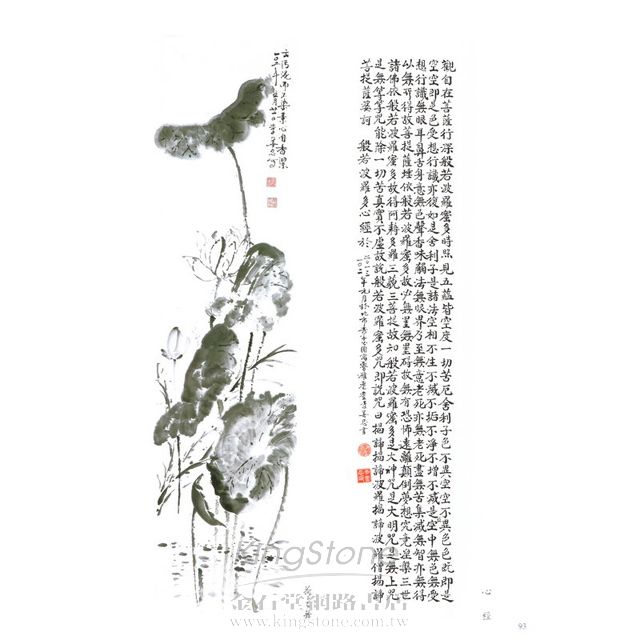 觀自在菩薩行深般若波羅蜜多時照見五蘊皆空度一切苦厄舍利子色不異空空不異色色即是
空空即是色受想行識亦復如是舍利子是諸法空相不生不滅不垢不淨不增不減是空中無色無受
想行識無眼耳鼻舌身意無色聲香味觸法無眼界乃至無意老死亦無老死盡無苦集滅無智亦無得
以無所得故菩提薩埵依般若波羅蜜多故心無罣礙無罣礙故無有恐怖遠離顛倒夢想究竟涅槃三世
諸佛依般若波羅蜜多故得阿耨多羅三藐三菩提故知般若波羅蜜多是大神咒是大明咒是無上咒
是無等等咒能除一切苦真實不虛故說般若波羅蜜多咒即說咒曰揭諦揭諦波羅揭諦波羅僧揭諦
菩提薩婆訶 般若波羅多心經於
心經
93
KingStone
金石堂網路書店
www.kingstone.com.tw